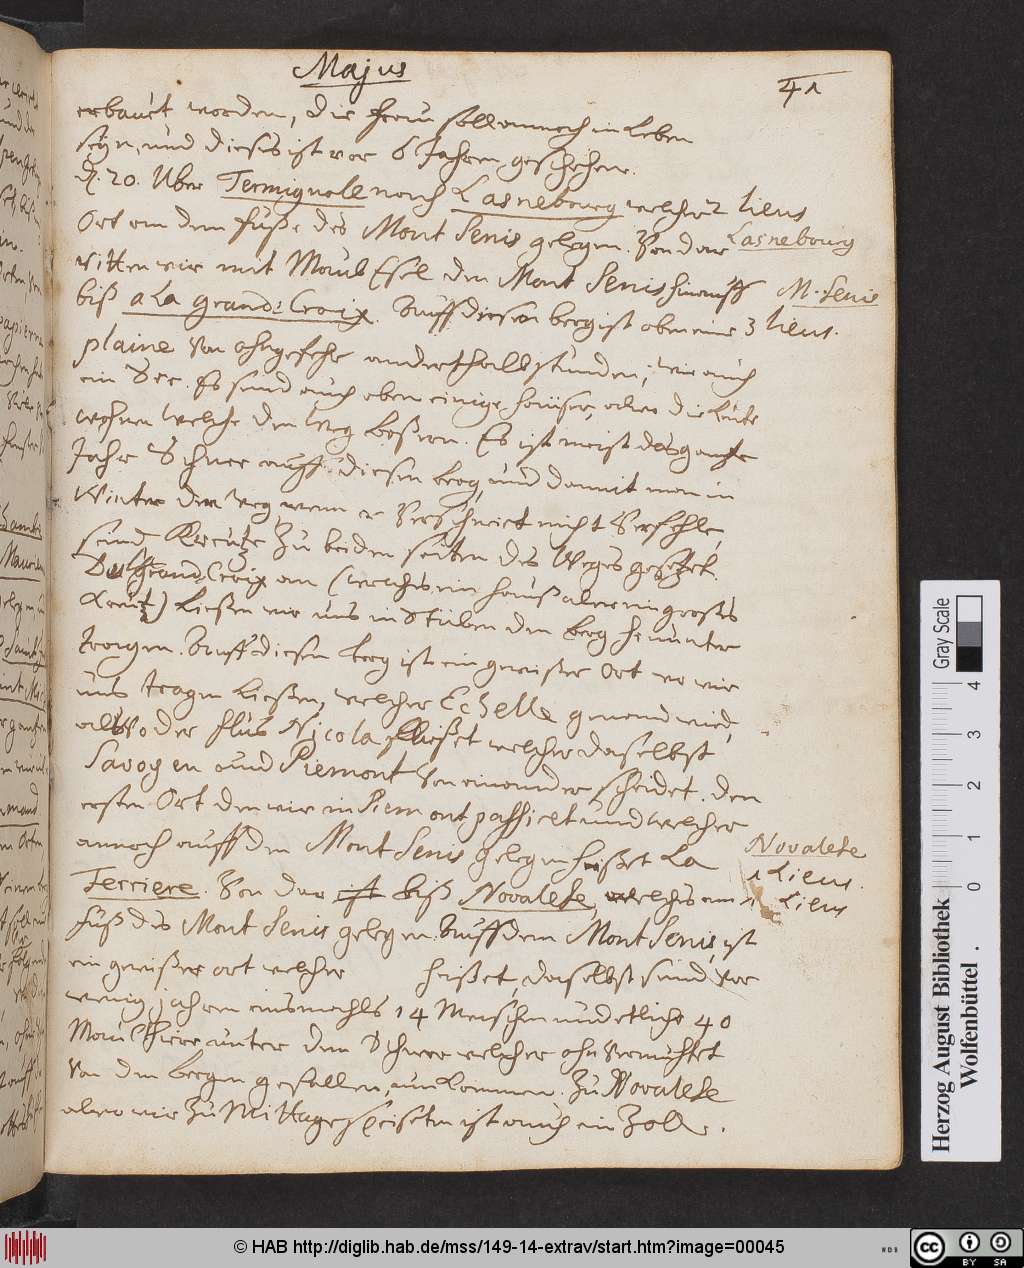 Majus
41
erbauet worden, die frau soll annoch in Leben
seyn, und dieses ist vor 6 Jahren geschehen.
d. 20. Uber Termignole nach Lasnebourg welcher 2 lieus
Ort an dem fuße des Mont Senis gelegen. Von dar
Lasnebourg
ritten wir mit Maul Esel den Mont Senis hinauff
M. Senis
biß a La grand: Croix. Auff diesen berg ist oben eine 3 lieus.
plaine von ohngefehr anderthalb stunden, wie auch
ein See. Es sind auch oben einige häuser, da die Leute
wohnen welche den Weg beßern. Es ist meist das gantze
Jahr Schnee auff diesen berg, und damit man im
Winter den Weg wenn er verschneiet nicht verfehle,
seind Kreutze zu beiden seiten des Weges gesetzet.
Da Grand Croix an (welches ein hauß aber ein großes
Kreutz) ließen wir uns in Stülen den berg herunter
tragen. Auff diesen berg ist ein gewißer Ort wo wir
uns tragen ließen, welcher Echelle genand wird,
alwo der fluß Nicola fließet welcher daselbst
Savoyen und Piemont von einander scheidet. den
ersten Ort den wir in Piemont passirt und welcher
annoch auff den Mont Senis gelegen heißet La
Novalese
1 Lieus.
Ferriere. Von dar biß Novalese, welches am
1 Lieus
fuß des Mont Senis gelegen. Auff dem Mont Senis, ist
ein gewißer ort welcher heißet daselbst sind vor
wenig jahren einsmahls 14 Menschen und etliche 40
Maulthiere unter den Schnee welcher ohnvermuhtet
von den bergen gefallen, umkommen. Zu Novalese
alwo wir zu Mittage speiseten ist auch ein Zoll.
Gray Scale
0 1 2 3 4
Herzog August Bibliothek
Wolfenbüttel
© HAB http://diglib.hab.de/mss/149-14-extrav/start.htm?image=00045
WDB
cc BY SA